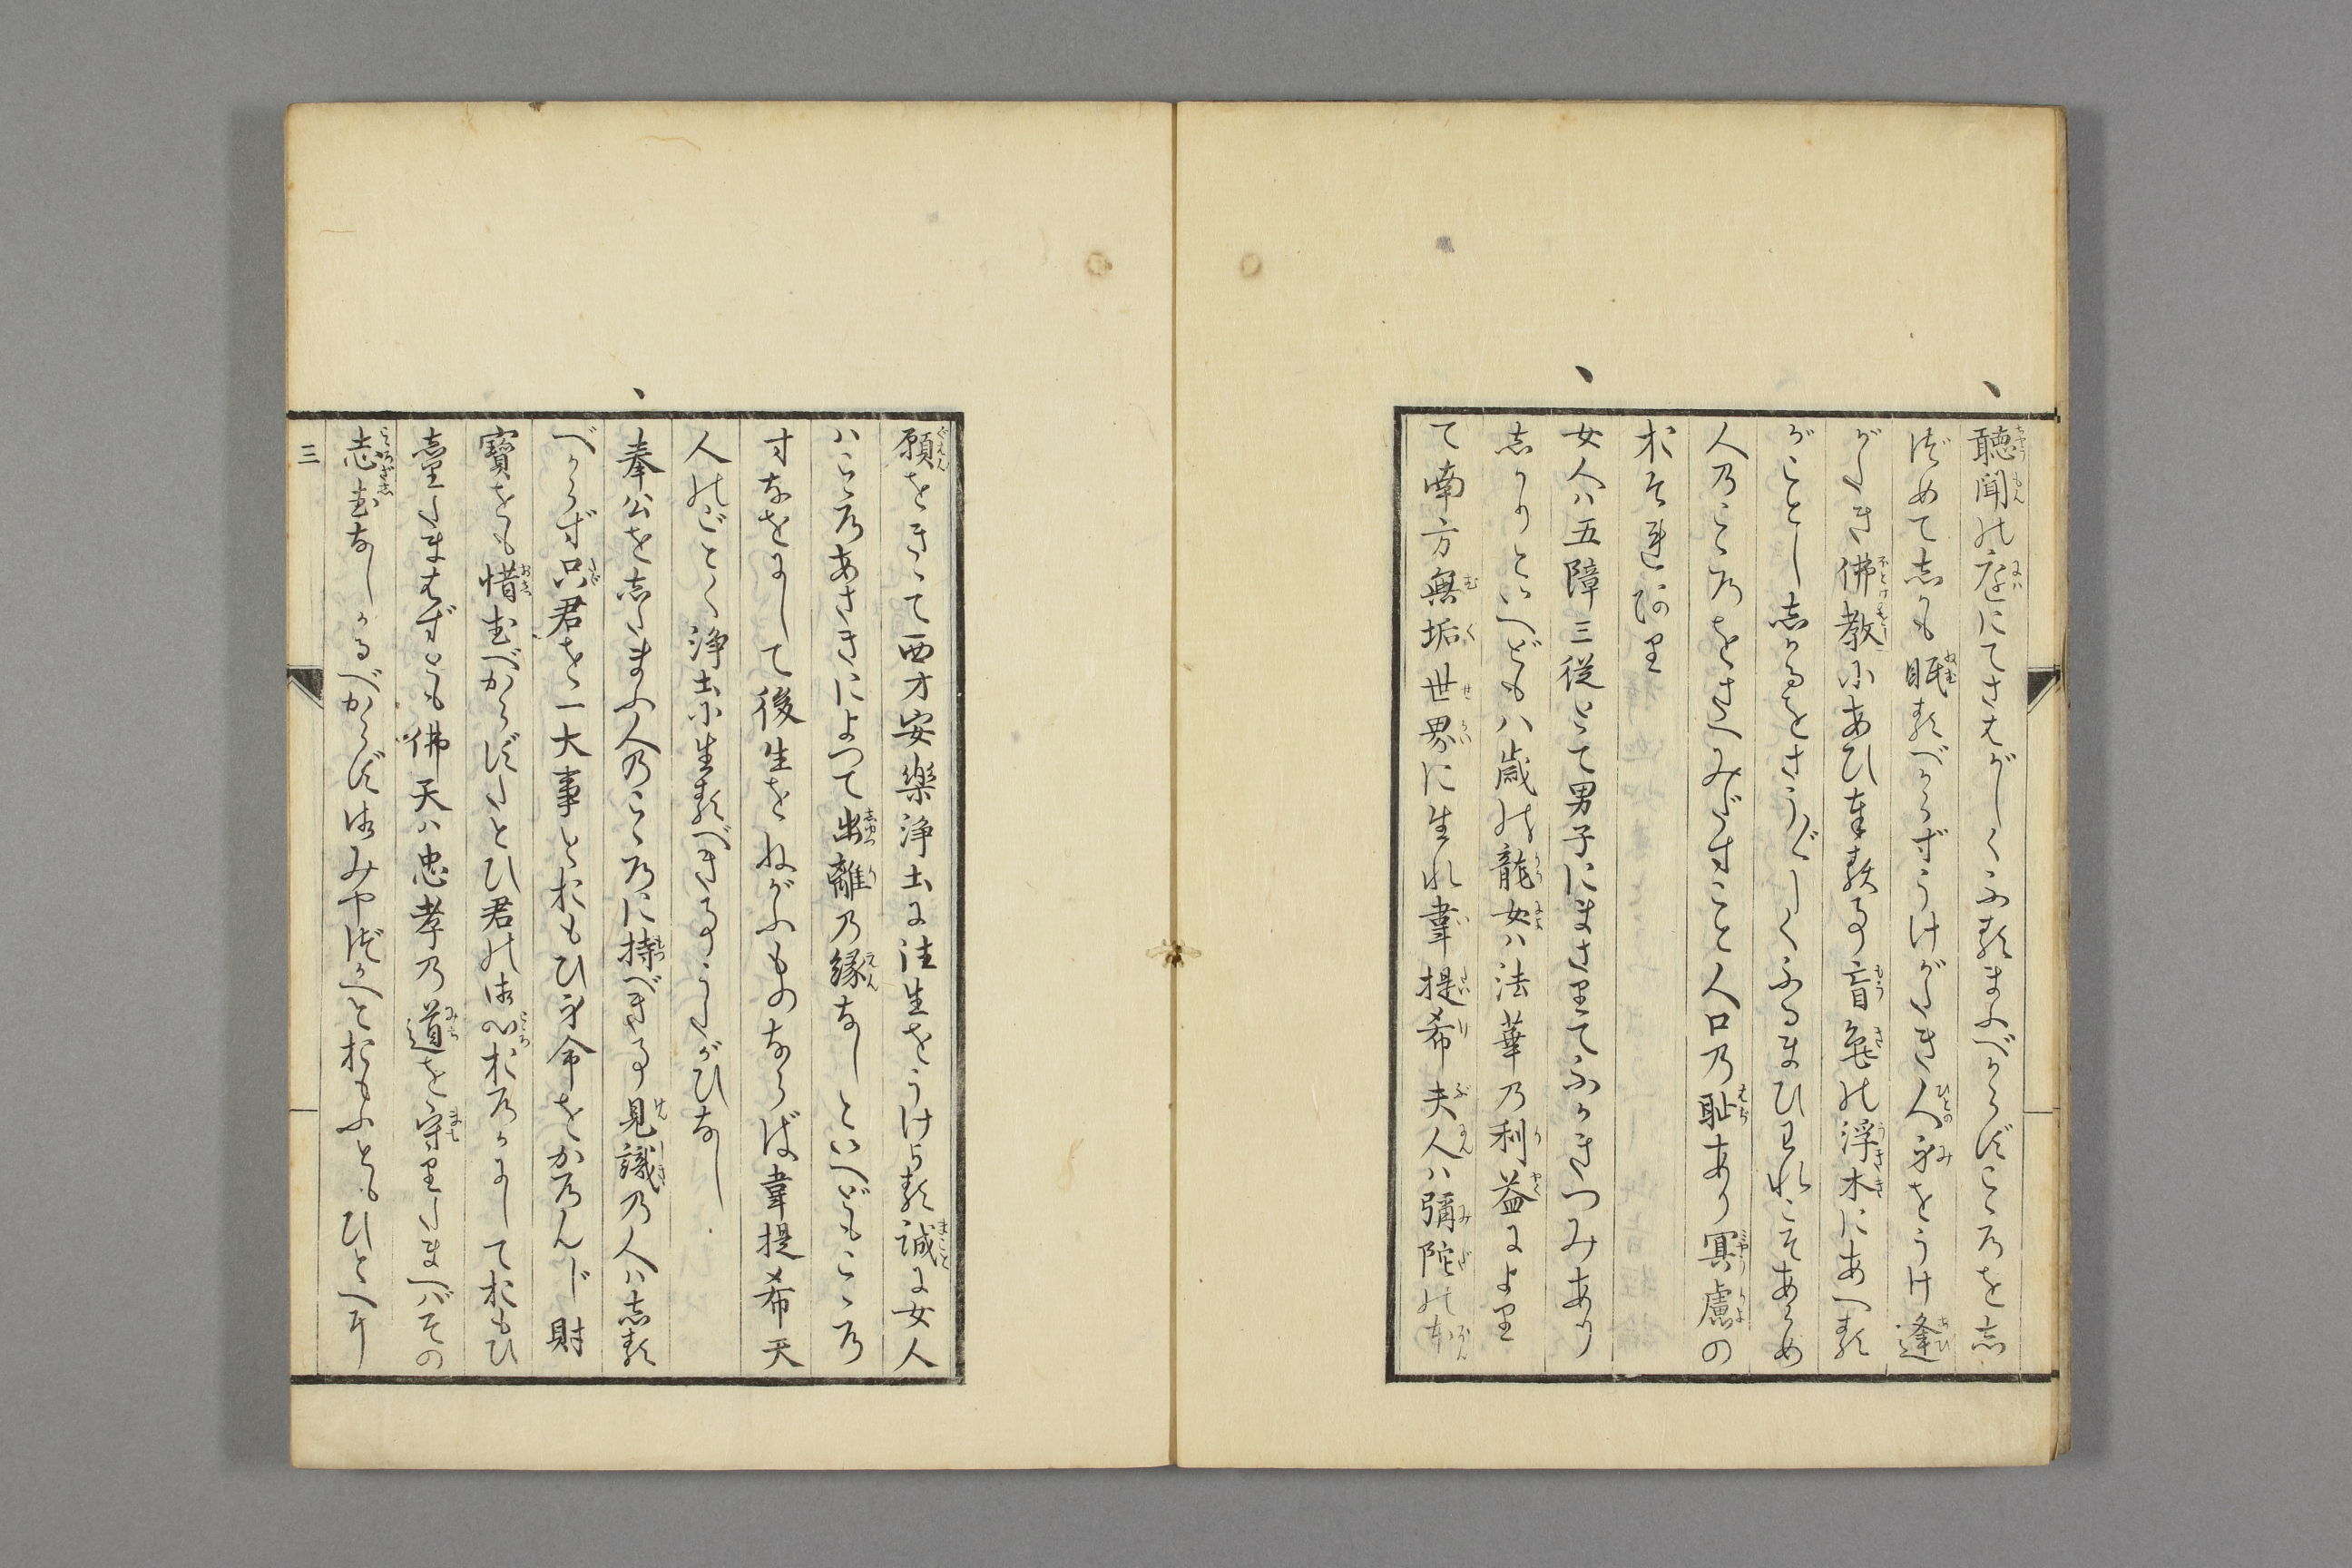 聴聞の庭にてさはがしくふるまふべからずこゝろを志
づめて志かも眠るべからずうけがたき人身をうけ逢
がたき佛教にあひ奉る事盲亀の浮木にあへる
がことし志かるをさうざうしくふるまひわれこそあらめ
人のこゝろをさへみだすこと人口の耻あり冥慮の
おそれあり
女人は五障三従とて男子にまさりてふかきつみあり
志かりといへども八歳の龍女は法華の利益により
て南方無垢世界に生れ韋提希夫人は彌陀の本
願をきゝて西方安樂浄土に往生をうけらる誠に女人
はこゝろあさきによつて出離の縁なしといへどもこゝろ
すなをにして後生をねがふものならば韋提希天
人のごとく浄土に生るべき事うたがひなし
奉公を志たまふ人のこゝろに持べき事見識の人は志る
べからず只君を一大事とおもひ身命をかろんじ財
寶をも惜むべからずたとひ君の御心おろかにしておもひ
志りたまはずとも佛天は忠孝の道を守りたまへばその
志むなしかるべからず御みやづかへとおもふともひとへに
三